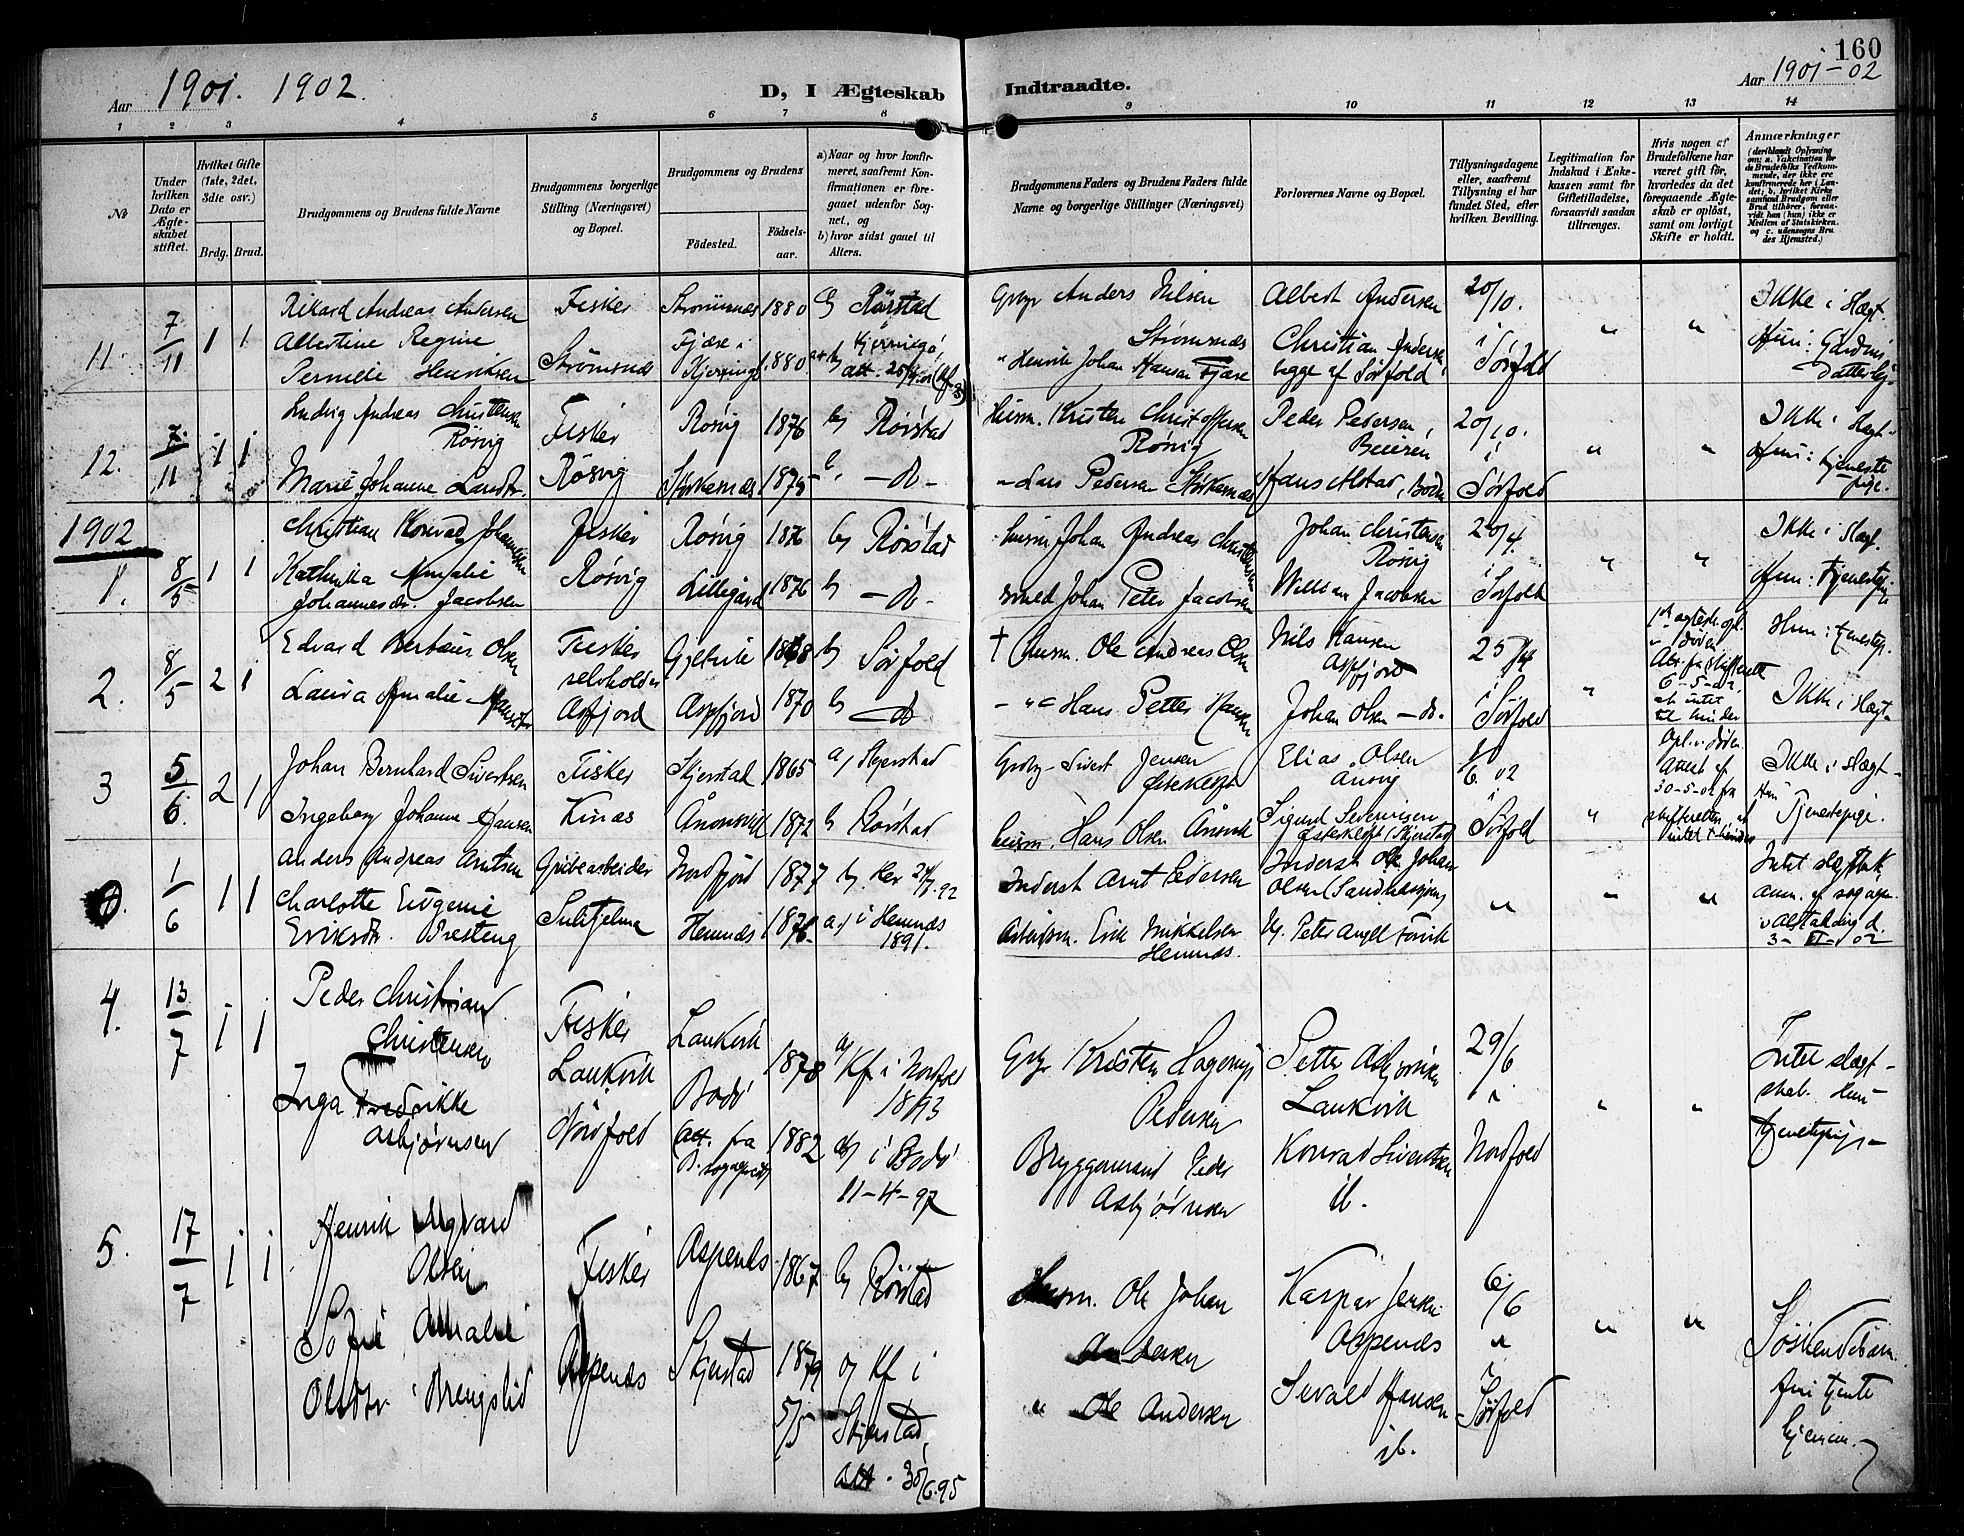 160
Aar 1901. 1902.
D, I Ægteskab
Indtraadte.
Aar 1901-02
1 2 3 4 5 6 7 8 9 10 11 12 13 14
№
Under hvilken Dato er Ægteskabet stiftet.
Hvilket Gifte (1ste, 2det, 3die osv.)
Brdg. Brud.
Brudgommens og Brudens fulde Navne
Brudgommens borgerlige Stilling (Næringsvei) og Bopæl.
Brudgommens og Brudens
Fødested.
Fødselsaar.
a) Naar og hvor konfirmeret, saafremt Konfirmationen er foregaaet udenfor Sognet, og
b) hvor sidst gaaet til Alters.
Brudgommens Faders og Brudens Faders fulde Navne og borgerlige Stillinger (Næringsvei)
Forlovernes Navne og Bopæl.
Tillysningsdagene eller, saafremt Tillysning ei har fundet Sted, efter hvilken Bevilling.
Legitimation for Indskud i Enkekassen samt for Giftetilladelse, forsaavidt saadan tiltrænges.
Hvis nogen af Brudefolkene har været gift før, hvorledes da det foregaaende Ægteskab er opløst, samt om lovligt Skifte er holdt.
Anmærkninger
(deriblandt Oplysning om: a. Vakcination for de Brudefolks Vedkommende, der ikke ere konfirmerede her i Landet; b. hvilket Kirkesamfund Brudgom eller Brud tilhører, forsaavidt han (hun) ikke er Medlem af Statskirken, og c. udensogns Brudes Hjemsted.)
11. 7/11 1 1
Rikard Andreas Andersen Fisker Strømsnes 1880 b) Rørstad
Albertine Regine
Pernelle Henriksen Strømsnæs Fjære i Kjerringø 1880
Gbr Anders Nilsen Strømsnæs
" Henrik Johan Hansen Fjære
Albert Andersen
Christian Andersen
begge af Sørfold
20/10. i Sørfold
" "
Ikke i Slægt.
12. 7/11 1 1
Ludvig Andreas Christensen Røsvig Fisker Røsvig 1876 b) Rørstad
Marie Johanne Larsdtr. Røsvig Styrkesnæs 1875 b) - do -
Husm. Kristen Christoffersen Røsvig
- Lars Pedersen Styrkesnæs
Peder Pedersen, Beieren
Hans Alstad, Bodø
20/10. i Sørfold
" "
Ikke i Slægt-
Hun: tjenestepige.
1902
1. 8/5 1 1
Christian Konrad Johansen Fisker Røsvig 1876 b) Rørstad
Kathinka Amalie
Johannesdr. Jacobsen Røsvig Lillegård 1876 b - do -
husm Johan Andreas Christensen
smed Johan Peter Jacobsen
Johan Christensen Røsvig
William Jacobsen
20/4. i Sørfold
" "
Ikke i Slægt.
Hun: tjenestep.
2. 8/5 2 1
Edvard Olsen Fisker 1868 b) Sørfold
Laura Amalie Hansdtr selvholder Aspfjord Aspfjord 1870 b) do
† husm. Ole Andreas Olsen
- " - Hans Petter Hansen
Nils Hansen Aspfjord
Johan Olsen - do.
25/4 i Sørfold
"
6-5-02,
Hun: tjenestep.
Ikke i Slægt-
3 5/6. 2 1
Johan Bernhard Sivertsen Fisker Skjerstad 1865 a) Skjerstad
Ingeborg Johanne Hansen Kinæs Ånonsvik 1872 b Rørstad
Gbr - Sivert Jensen
husm. Hans Olsen Ånsvik
Elias Olsen Ansvig
Sigurd Severinsen (Skjerstad)
1/6 02 i Sørfold
"
Opl. v. døden
30-5-02 fra skifteretten
Ikke i slægt-
Hun Tjenestepige.
1/6 1 1
Anders Andreas Arntsen Grubearbeider Nordfjord 1877 b. Her 24/7 92
Charlotte Eugenie
Eriksdr. Bresteng Sulitjelma Hemnes 1876. a) i Hemnæs 1891.
Inderst Arnt Pedersen
Arbeidsm. Erik Mikkelsen Hemnæs.
Inderst Ole Johan Olsen
" " "
3-VI-02
4. 13/7 1 1
Peder Christian Christensen Fisker Laukvik 1878 a) Kf i Nordfold 1893
Inga Fredrikke Asbjørnsen Laukvik Nordfold Bodø 1882 i Bodø 11-4-97
Gbr Kristen Hagerup Pedersen
Bryggemand Peder Asbjørnsen
Petter Asbjørnsen Laukvik
Konrad Sivertsen ib.
29/6 i Nordfold
" "
Intet slægtskab. Hun tjenestepige-
5. 17/7 1 1
Henrik Sigvard Olsen Fisker Aspenes 1867 b) Rørstad
Sofie Amalie Olsdtr. Brengslid Aspenæs Skjerstad 1879 5/5 a) Kf i Skjerstad, alt. 30/6.95
Husm. Ole Johan Andersen
" Ole Andersen
Kaspar Jensen Aspenæs
Sevald Hansen ib.
6/6 i Sørfold
" "
Søskendebarn.
hun tjente hjemme.-